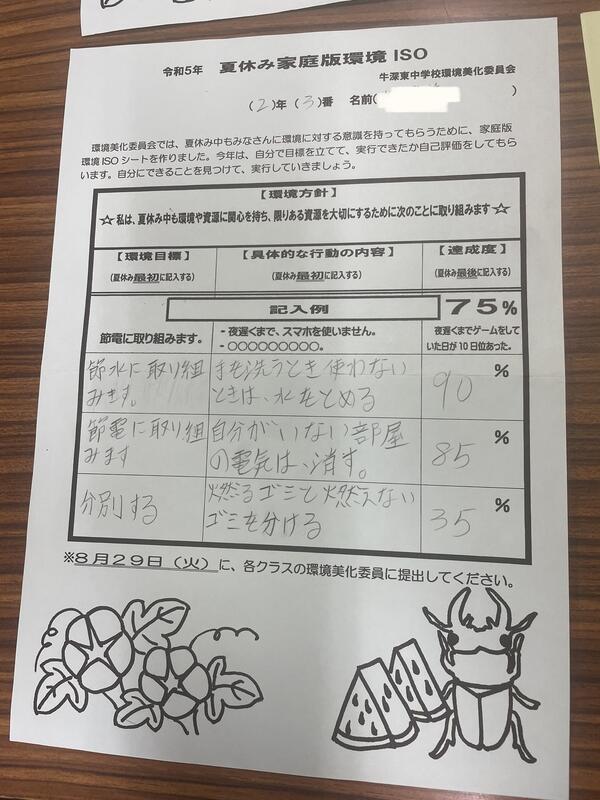 令和5年 夏休み家庭版環境 ISO
牛深東中学校環境美化委員会
(2)年(3)番 名前( )
環境美化委員会では、夏休み中もみなさんに環境に対する意識を持ってもらうために、家庭版
環境ISOシートを作りました。今年は、自分で目標を立てて、実行できたか自己評価をしてもら
います。自分にできることを見つけて、実行していきましょう。
【環境方針】
☆私は、夏休み中も環境や資源に関心を持ち、限りある資源を大切にするために次のことに取り組みます☆
【環境目標】 【具体的な行動の内容】 【達成度】
(夏休み最初に記入する) (夏休み最初に記入する) (夏休み最後に記入する)
記入例 75%
節電に取り組みます。
・夜遅くまで、スマホを使いません。
・○○○○○○○○○。
夜遅くまでゲームをして
いた日が10日位あった。
節水に取り組
みます。
手を洗うとき使わない
ときは、水をとめる
90 %
節電に取り組
みます
自分がいない部屋
の電気は、消す。
85 %
分別する
燃るゴミと燃えない
ゴミを分ける
35 %
※8月29日(火)に、各クラスの環境美化委員に提出してください。